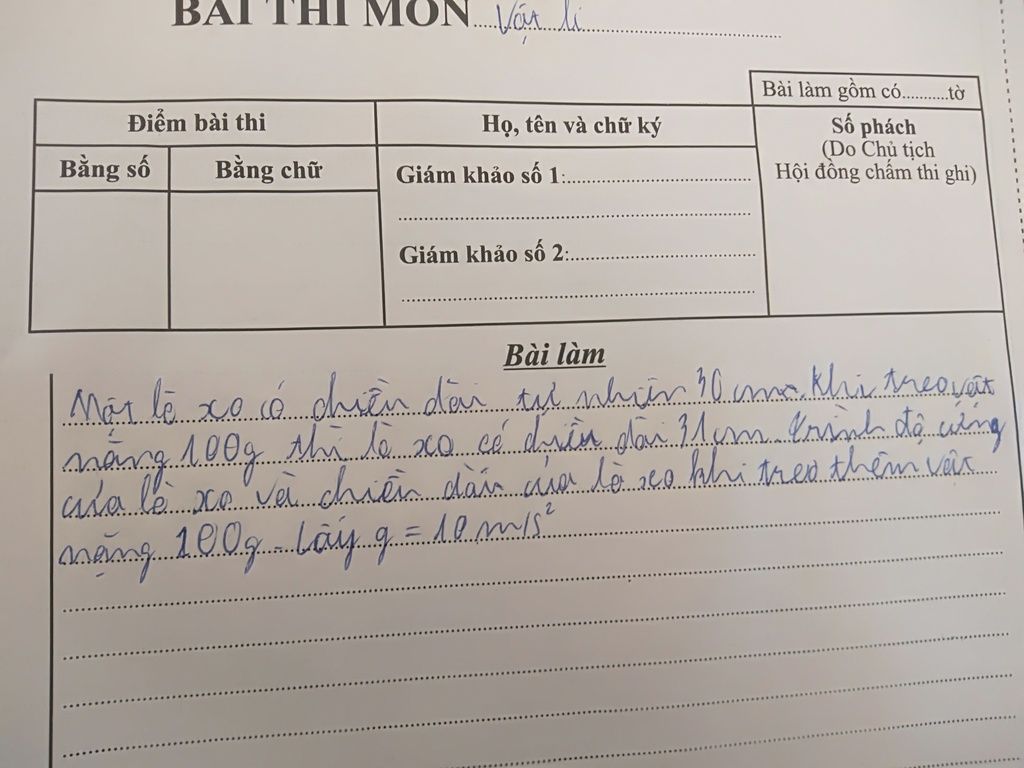 BÀI THI MÔN.....Vật lí.....
Bài làm gồm có...........tờ
Điểm bài thi
Họ, tên và chữ ký
Số phách
(Do Chủ tịch
Hội đồng chấm thi ghi)
Bằng số
Bằng chữ
Giám khảo số 1:
Giám khảo số 2:
Bài làm
Một lò xo có chiều dài tự nhiên 30 cm. khi treo vật
nặng 100g thì lò xo có chiều dài 31cm. Trình độ cứng
của lò xo và chiều dài của lò xo khi treo thêm vật
nặng 100g. Lấy g = 10 m/s²